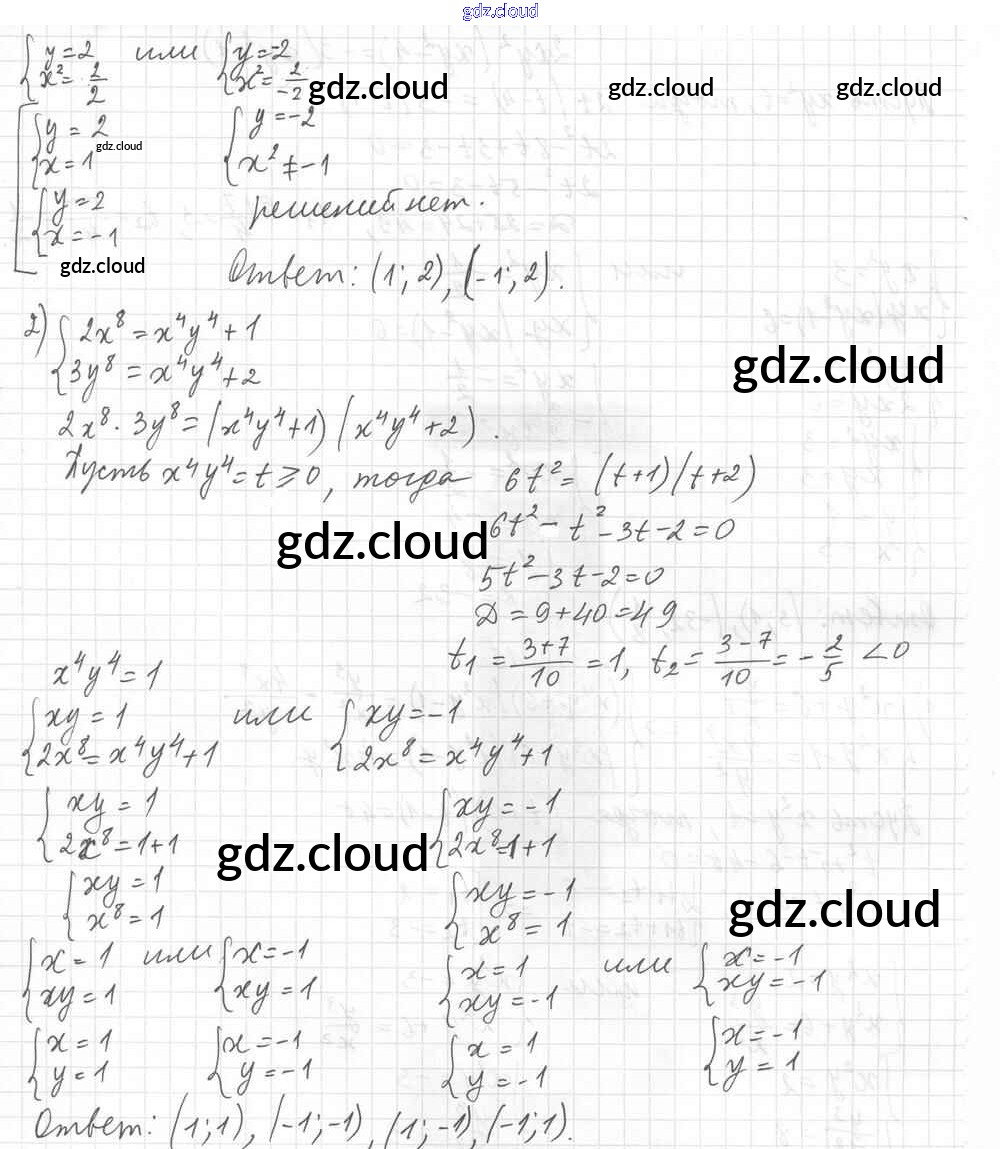 gdz.cloud
{ y = 2, x² = 2/2 или { y = -2, x² = 2/-2
gdz.cloud gdz.cloud gdz.cloud
[ { y = 2, x = 1 { y = -2, x² ≠ -1
gdz.cloud
{ y = 2, x = -1 решений нет.
gdz.cloud
Ответ: (1; 2), (-1; 2).
2) { 2x⁸ = x⁴y⁴ + 1
3y⁸ = x⁴y⁴ + 2
gdz.cloud
2x⁸ · 3y⁸ = (x⁴y⁴ + 1) (x⁴y⁴ + 2).
Пусть x⁴y⁴ = t ⩾ 0, тогда 6t² = (t+1)(t+2)
gdz.cloud
6t² - t² - 3t - 2 = 0
5t² - 3t - 2 = 0
Д = 9 + 40 = 49
t₁ = (3+7)/10 = 1, t₂ = (3-7)/10 = -2/5 < 0
x⁴y⁴ = 1
{ xy = 1, 2x⁸ = x⁴y⁴ + 1 или { xy = -1, 2x⁸ = x⁴y⁴ + 1
{ xy = 1, 2x⁸ = 1+1 { xy = -1, 2x⁸ = 1+1
gdz.cloud
{ xy = 1, x⁸ = 1 { xy = -1, x⁸ = 1
gdz.cloud
{ x = 1, xy = 1 или { x = -1, xy = 1 { x = 1, xy = -1 или { x = -1, xy = -1
{ x = 1, y = 1 { x = -1, y = -1 { x = 1, y = -1 { x = -1, y = 1
Ответ: (1; 1), (-1; -1), (1; -1), (-1; 1).